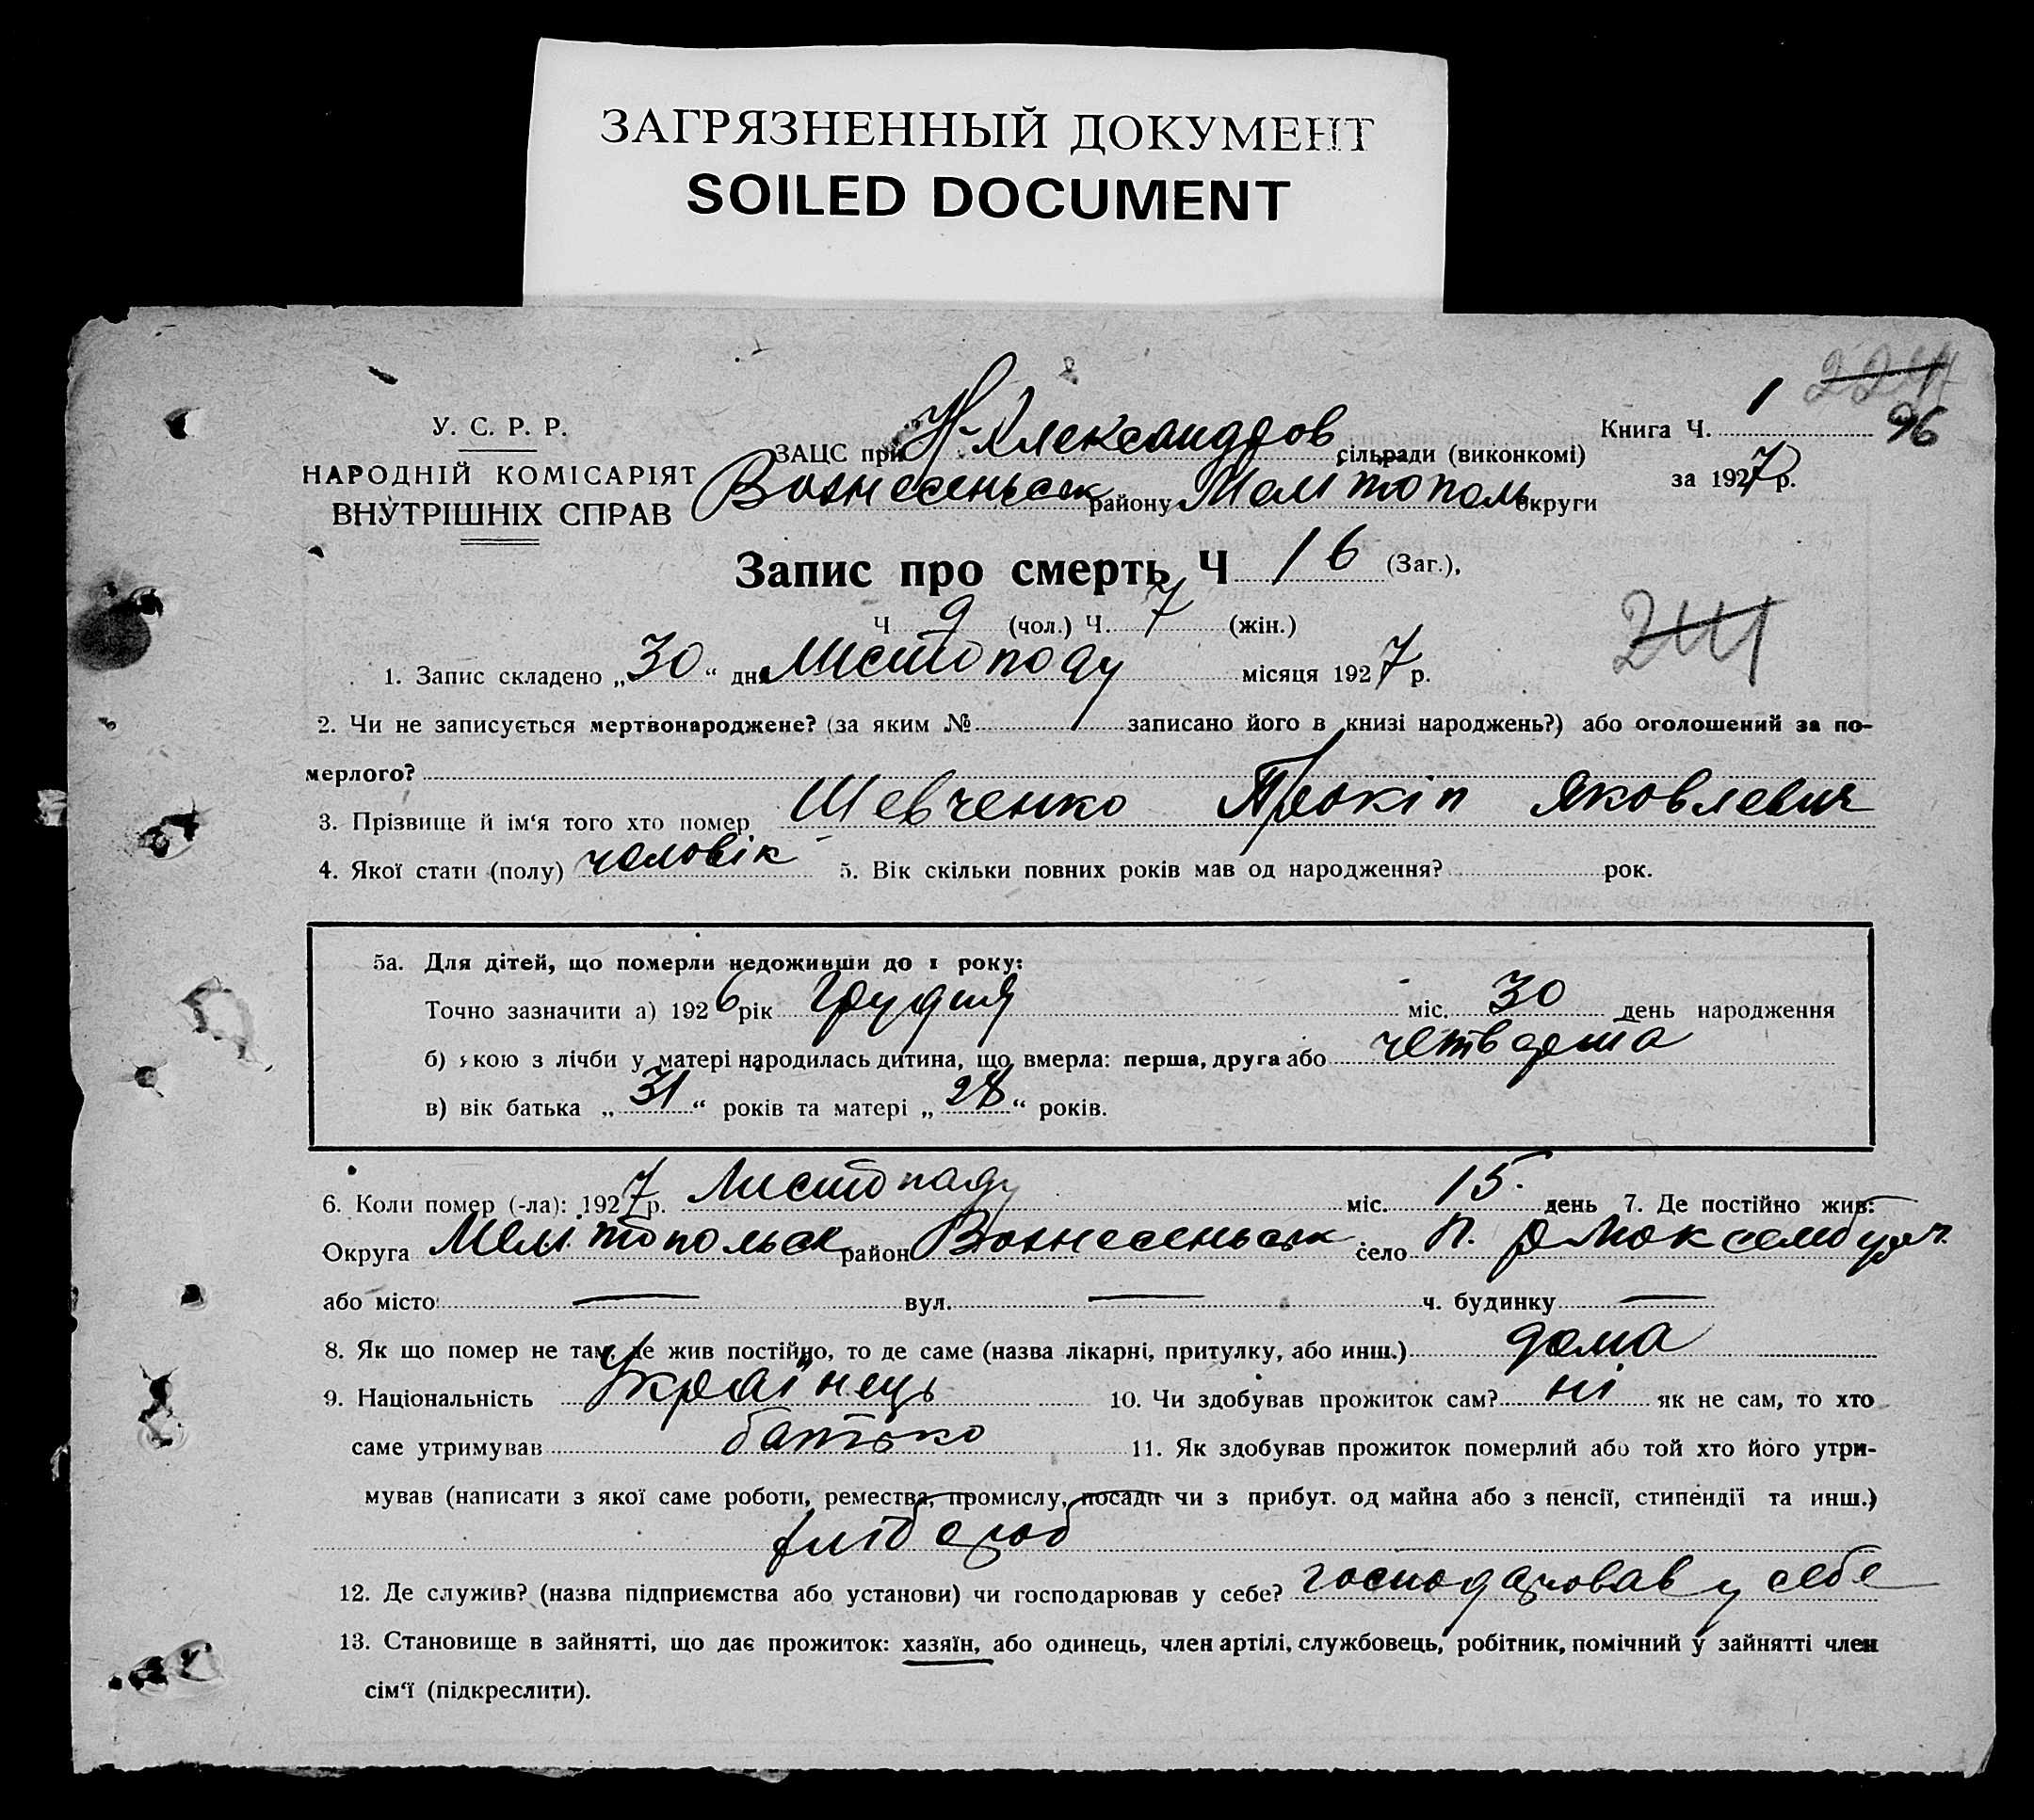 ЗАГРЯЗНЕННЫЙ ДОКУМЕНТ
SOILED DOCUMENT
224
У. С. Р. Р.
НАРОДНІЙ КОМІСАРІЯТ
ВНУТРІШНІХ СПРАВ
ЗАЦС при Н-Александров сільради (виконкомі)
Вознесенськ району Мелітополь округи
Книга Ч. 1 96
за 1927 р.
Запис про смерть Ч 16 (Заг.),
Ч 9 (чол.) Ч. 7 (жін.)
1. Запис складено „30“ дня Листопаду місяця 1927 р.
2. Чи не записується мертвонароджене? (за яким № записано його в книзі народжень?) або оголошений за по-
мерлого?
3. Прізвище й ім‘я того хто помер Шевченко Прокіп Яковлевич
4. Якої стати (полу) чоловік 5. Вік скільки повних років мав од народження? рок.
5а. Для дітей, що померли недоживши до 1 року:
Точно зазначити а) 1926 рік Грудня міс. 30 день народження
б) якою з лічби у матері народилась дитина, що вмерла: перша, друга або четверта
в) вік батька „31“ років та матері „28“ років.
6. Коли помер (-ла): 1927 р. Листопаду міс. 15 день 7. Де постійно жив:
Округа Мелітопольськ район Вознесенськ село п.
або місто — вул. — ч. будинку —
8. Як що помер не там, де жив постійно, то де саме (назва лікарні, притулку, або инш.) дома
9. Національність Українець 10. Чи здобував прожиток сам? ні як не сам, то хто
саме утримував батько 11. Як здобував прожиток померлий або той хто його утри-
мував (написати з якої саме роботи, ремества, промислу, посади чи з прибут. од майна або з пенсії, стипендії та инш.)
хлібороб
12. Де служив? (назва підприємства або установи) чи господарював у себе? господарював у себе
13. Становище в зайнятті, що дає прожиток: хазяїн, або одинець, член артілі, службовець, робітник, помічний у зайнятті член
сім‘ї (підкреслити).